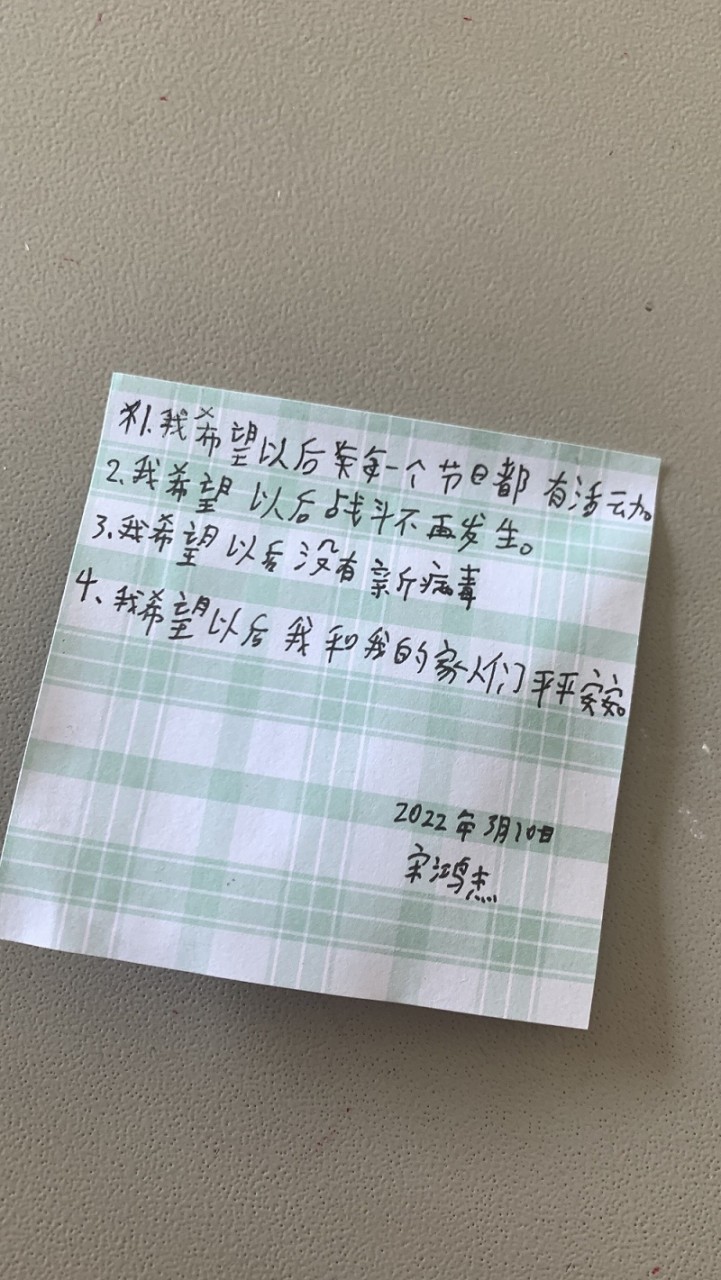 1.我希望以后每一个节日都有活动。
2.我希望以后战斗不再发生。
3.我希望以后没有亲斤病毒
4、我希望以后我和我的家人们平平安安。
2022年3月10日
宋鸿杰